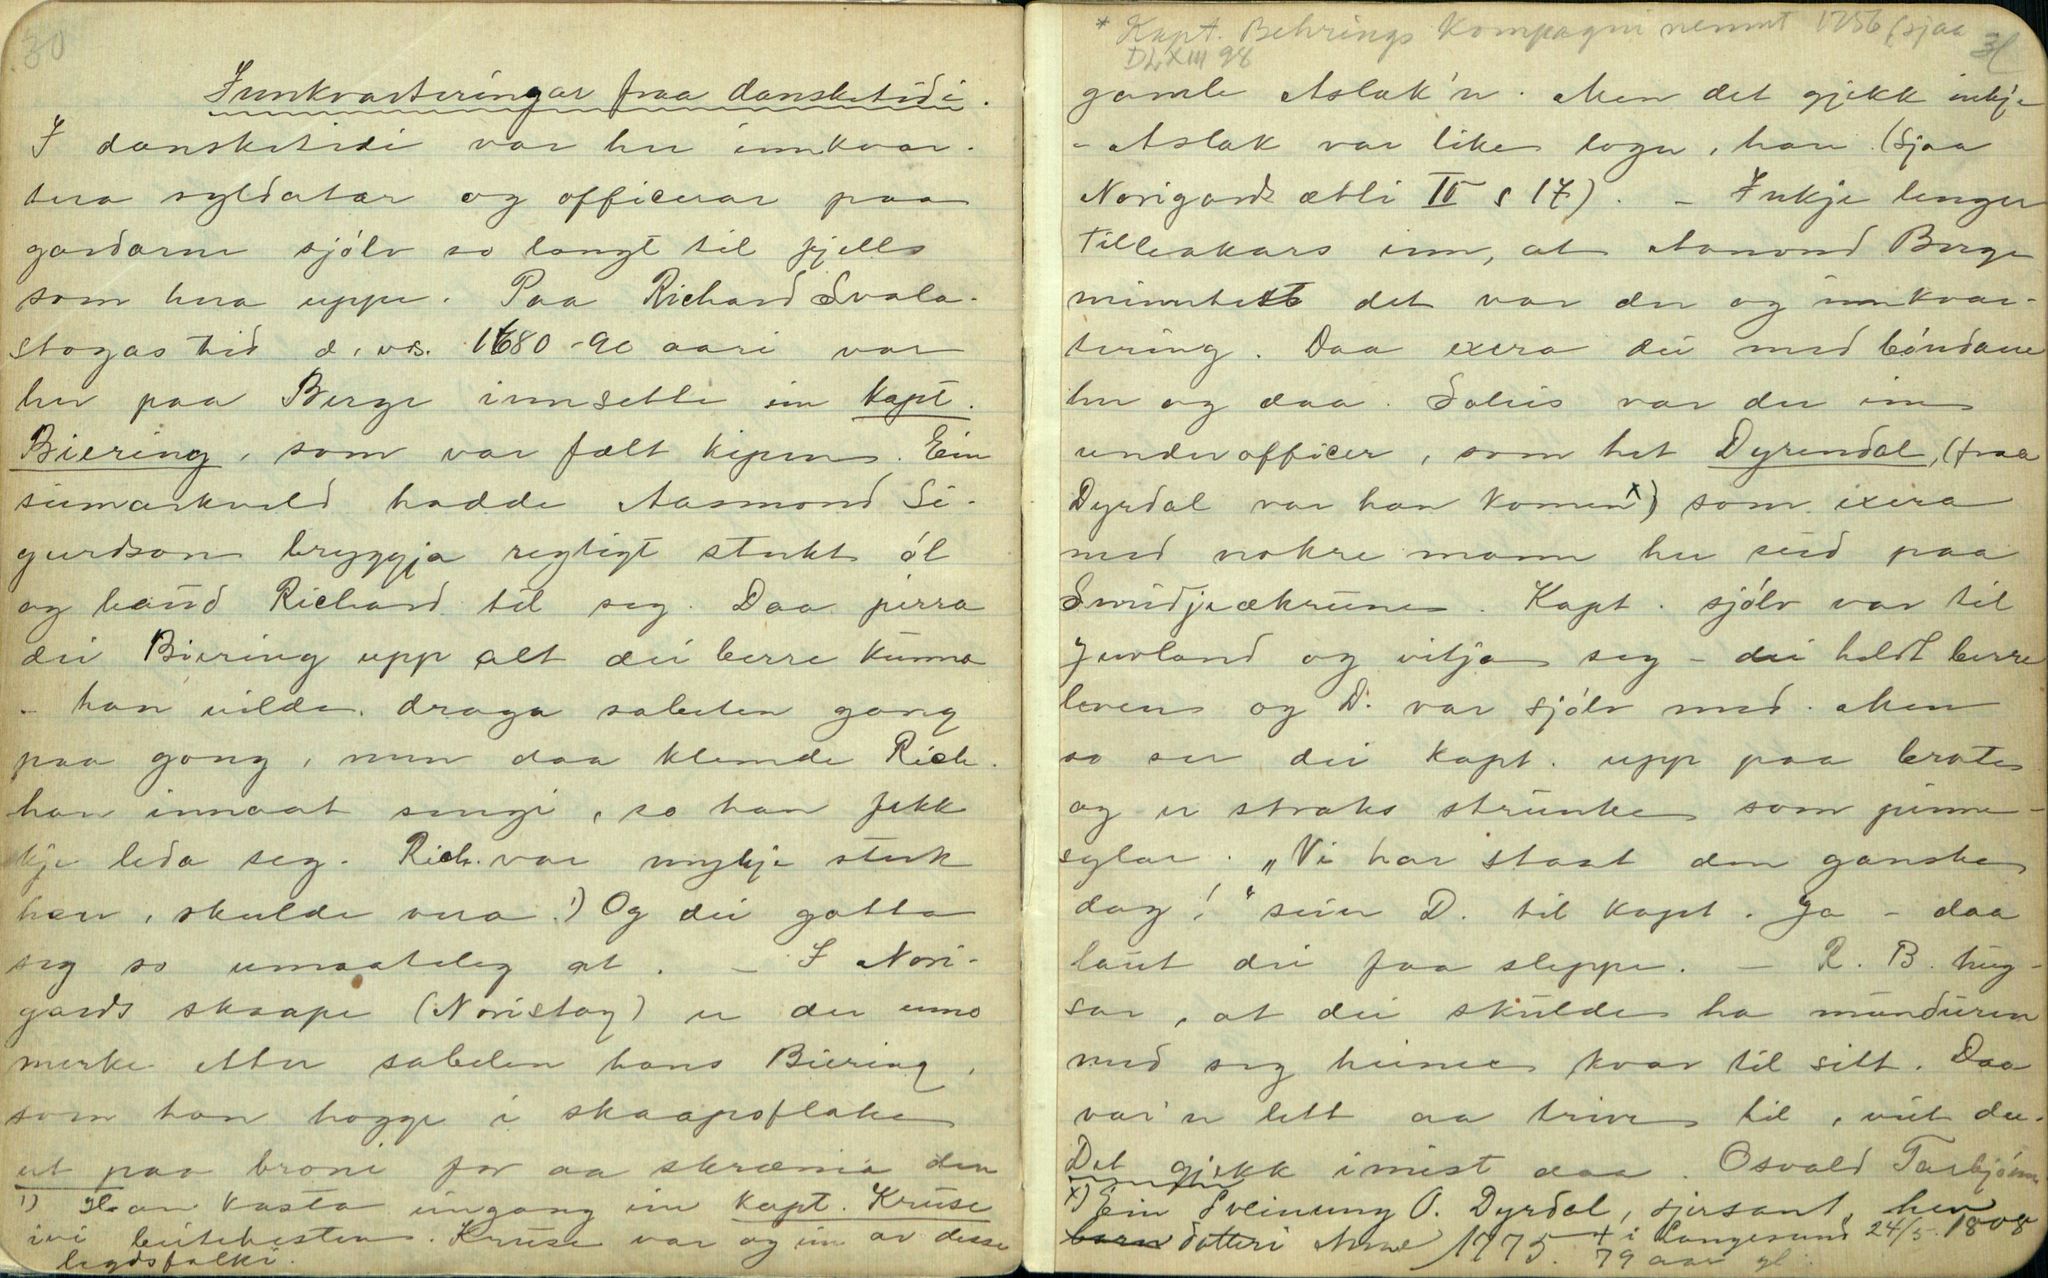 30
Innkvarteringar fraa dansketidi.
I dansketidi var her innkvar-
tera syldatar og officerar paa
gardarne sjölv so langt til fjells
som hera uppe. Paa Richard Svala-
stogas tid d. v. s. 1680-90 aari var
her paa Berge innsette ein kapt.
Biering, som var fælt kipen. Ein
sumarkveld hadde Aasmond Si-
gurdson bryggja regtigt sterkt öl
og baud Richard til seg. Daa pirra
dei Biering upp alt dei berre kunna
- han vilde draga sabelen gang
paa gong, men daa klemde Rich.
han innaat sengi, so han fekk
kje leda seg. Rich. var mykje sterk
han, skulde vera.1) Og dei gotta
seg so umaateleg at. - I Nori-
gards skaape (Noristog) er der eino
merke etter sabelen hans Biering,
som han hogge i skaapsflake
ut paa broni for aa skræma den
1) Han kasta eingong ein kapt. Kruse
ivi beitehesten. Kruse var og ein av desse
legdsfolki.
* Kapt. Behrings Kompagni nemnt 1756 (sjaa
DL XIII 98
31
gamle Aslak'n. Men det gjekk inkje
- Aslak var like logn, han. (Sjaa
Norigards ætli IV s 17). - Inkje lenger
tilbakars inn, at Aamond Berge
minntest det var der og innkvar-
tering. Daa exera dei med böndane
her og daa. Soleis var der ein
underofficer, som het Dyrendal, (fraa
Dyrdal var han komen x) som exera
med nokre mann her sud paa
Smidjeækrune. Kapt. sjölv var til
Juvland og vitja seg - dei heldt berre
leven og D. var sjölv med. Men
so ser dei kapt. upp paa brote
og er straks strunke som pinne-
sylar. „Vi har staat den ganske
dag!“ seier D. til kapt. Ja - daa
laut dei faa sleppe. - R. B. hug-
sar, at dei skulde ha munduren
med seg heime kvar til sitt. Daa
var'n lett aa trive til, veit du.
Det gjekk imist daa. Osvald Torbjönn
x) Ein Sveinung O. Dyrdal, sjersant, her
dotteri Anne 1775. + i Langesund 24/5 1808
79 aar gl.